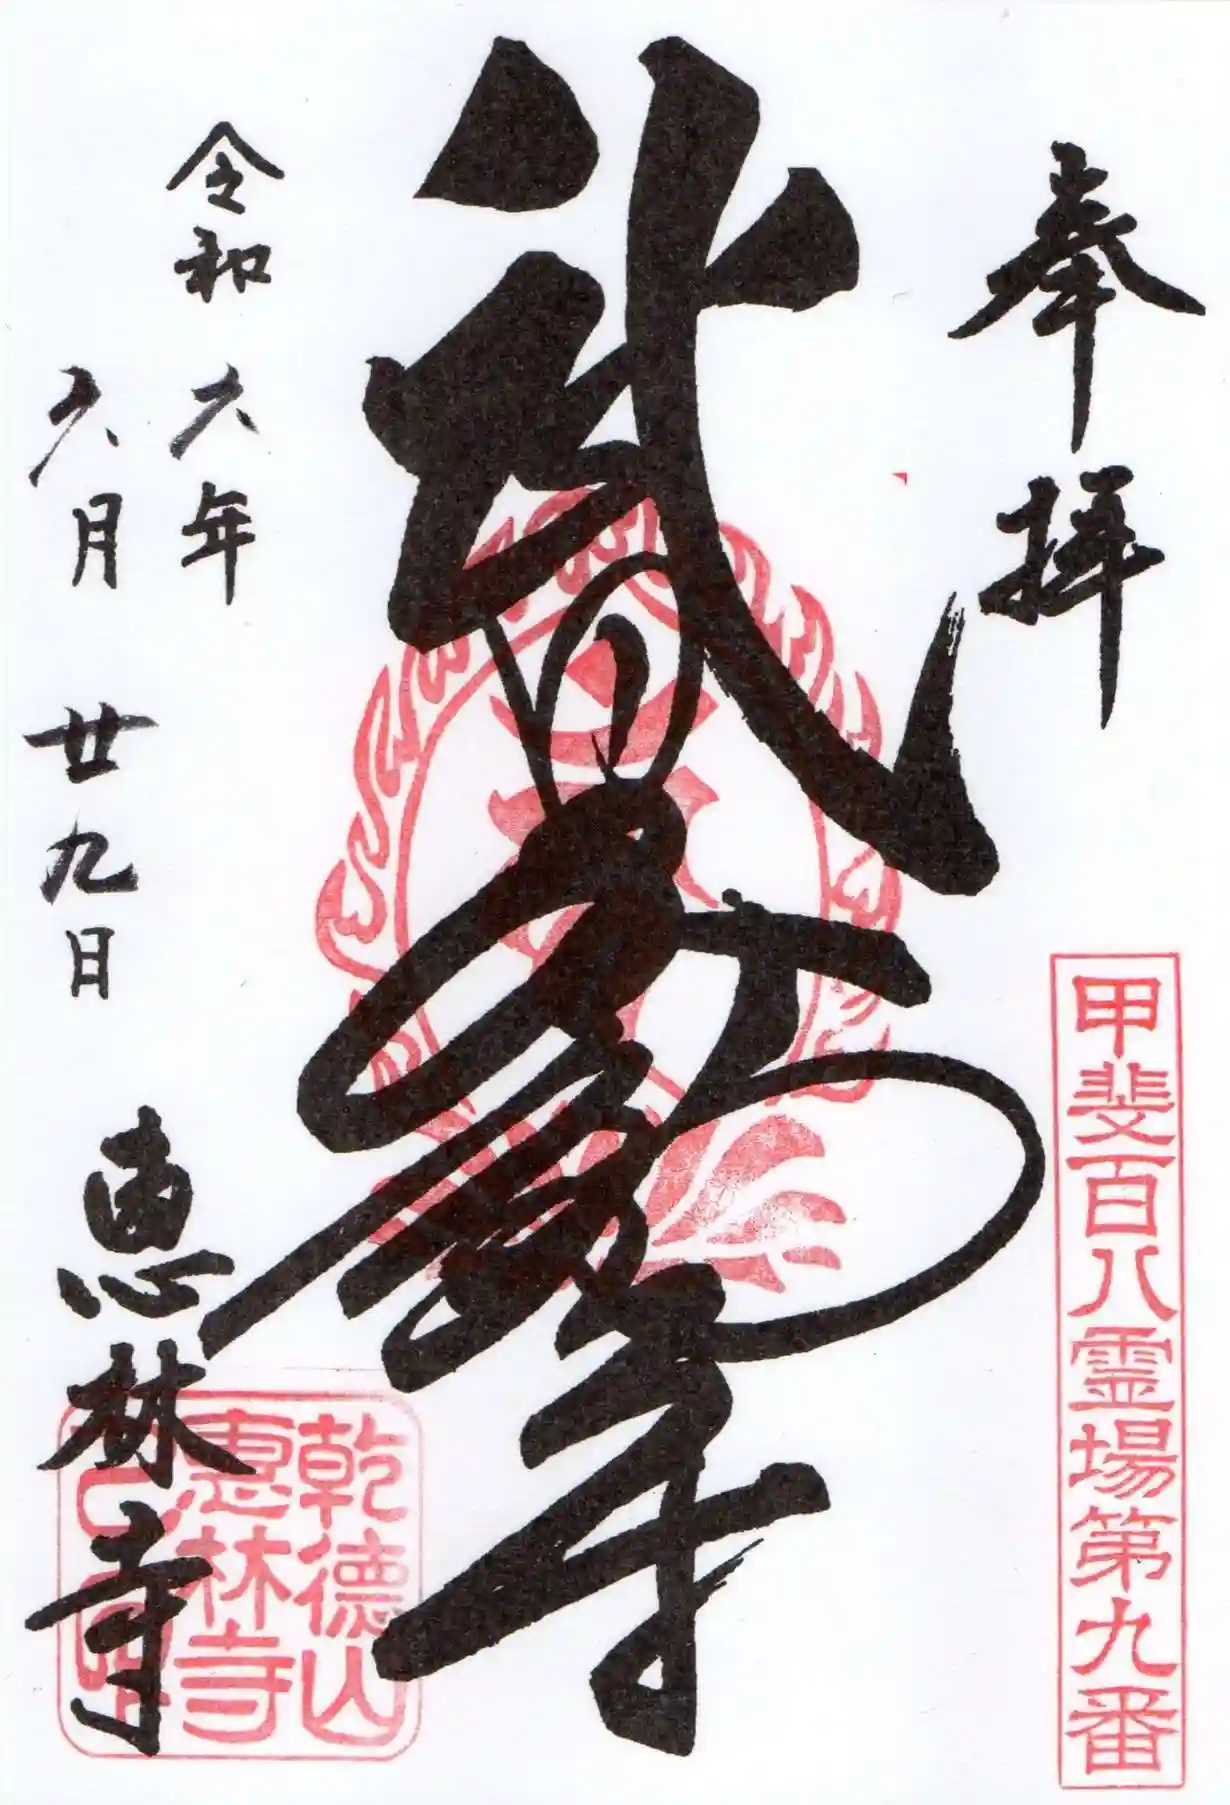 奉拝
甲斐百八霊場第九番
武田不動尊
令和六年
六月廿九日
恵林寺
乾徳山
恵林寺